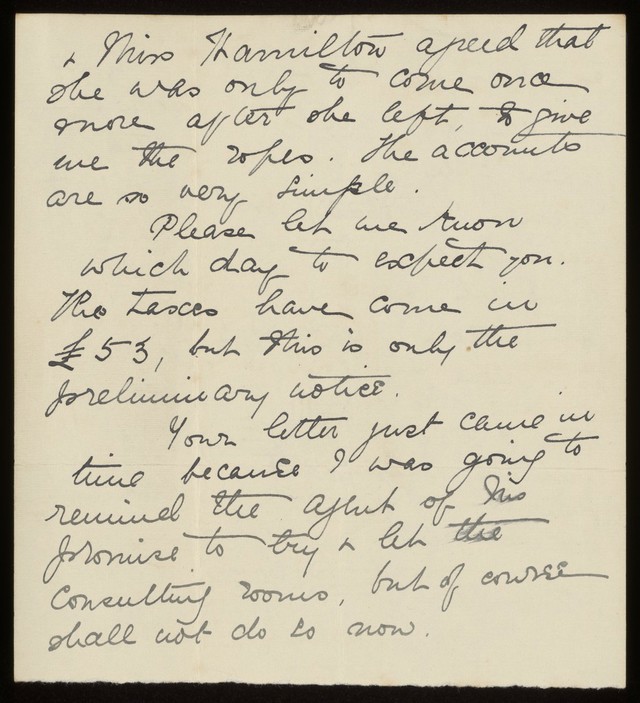 & Miss Hamilton agreed that
she was only to come once
more after she left, to give
me the ropes. The accounts
are so very simple.
Please let me know
which day to expect you.
The taxes have come in
£53, but this is only the
preliminary notice.
Your letter just came in
time because I was going to
remind the agent of his
promise to try & let the
consulting rooms, but of course
shall not do so now.